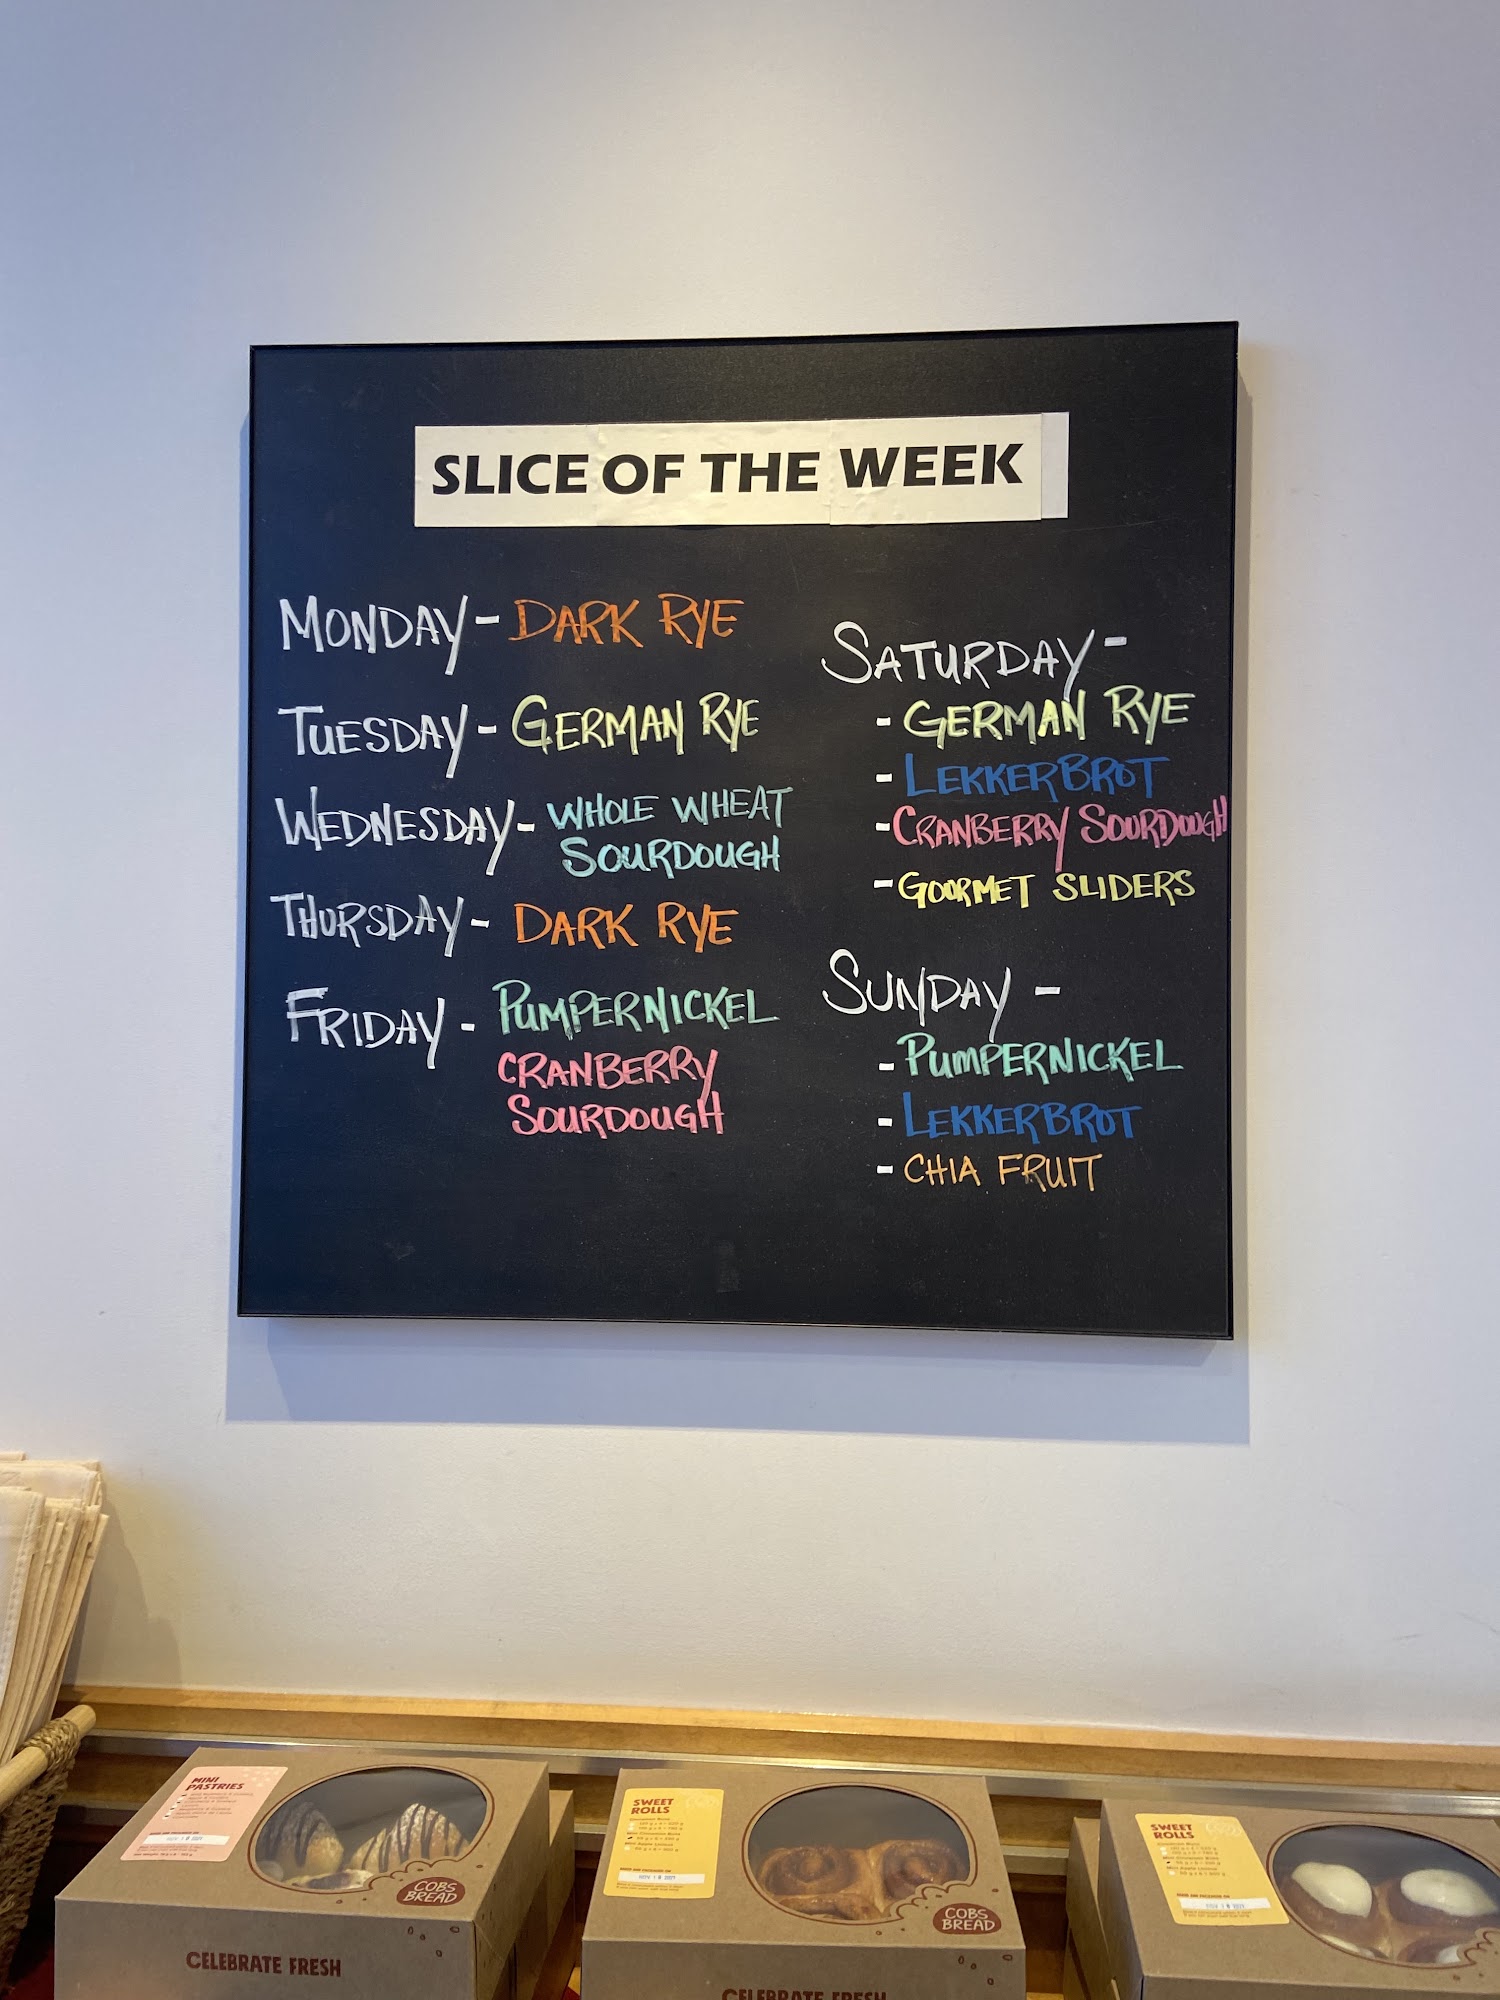 SLICE OF THE WEEK
MONDAY - DARK RYE
TUESDAY - GERMAN RYE
WEDNESDAY - WHOLE WHEAT
SOURDOUGH
THURSDAY - DARK RYE
FRIDAY - PUMPERNICKEL
CRANBERRY
SOURDOUGH
SATURDAY -
- GERMAN RYE
- LEKKERBROT
- CRANBERRY SOURDOUGH
- GOURMET SLIDERS
SUNDAY -
- PUMPERNICKEL
- LEKKERBROT
- CHIA FRUIT
MINI
PASTRIES
COBS
BREAD
CELEBRATE FRESH
SWEET
ROLLS
NOV 18 2021
COBS
BREAD
CELEBRATE FRESH
SWEET
ROLLS